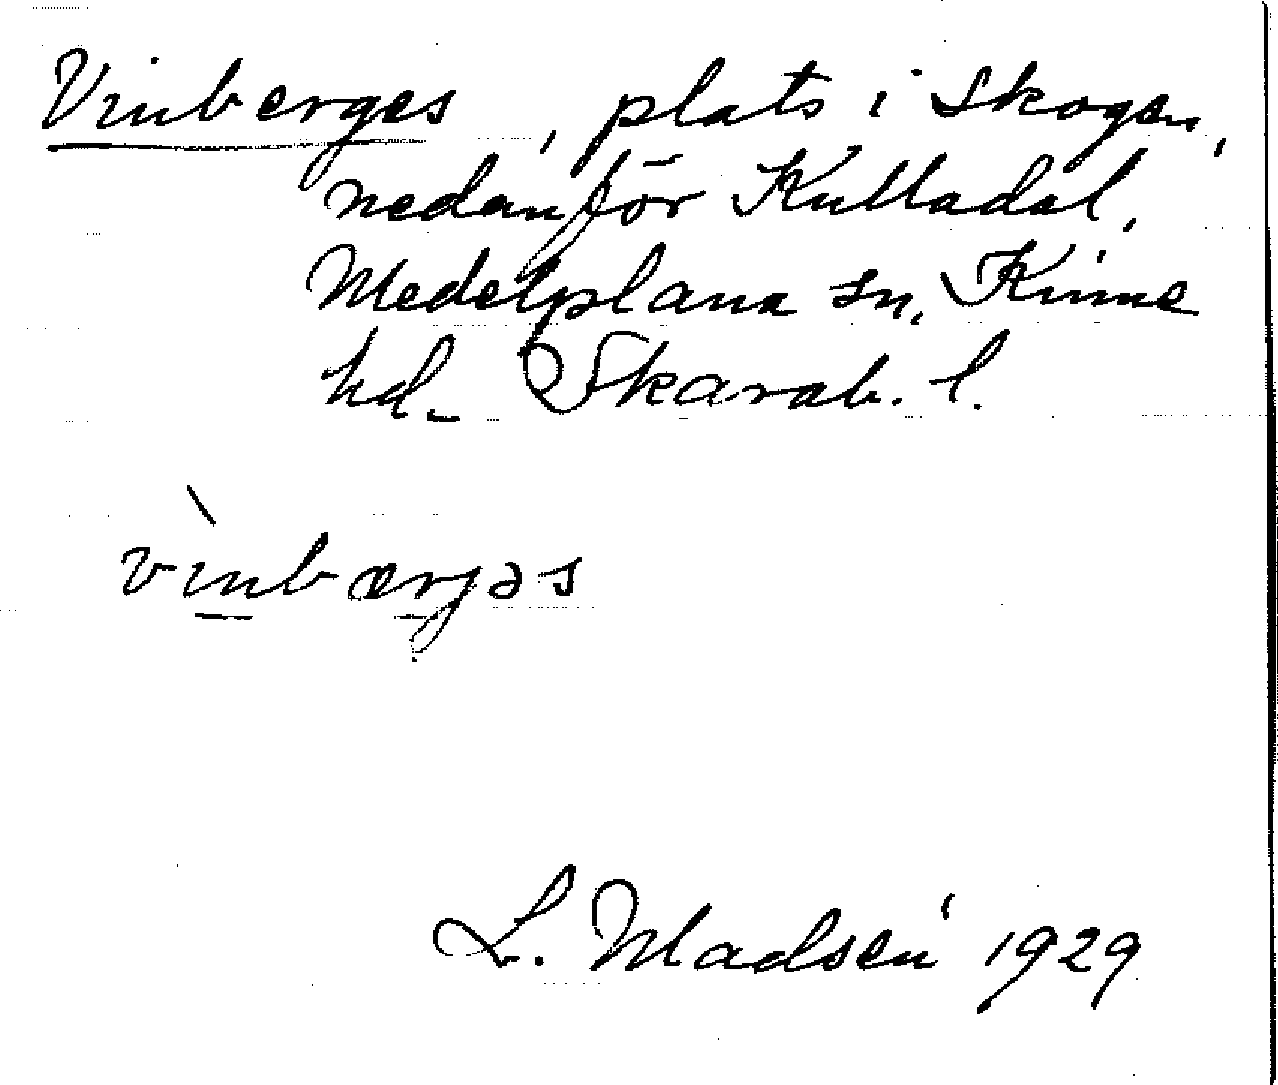 Vinberges, plats i Skogen,
nedanför Kulladal,
Medelplana sn, Kinne
hd. Skarab. l.
vìnbærjəs
L. Madsén 1929